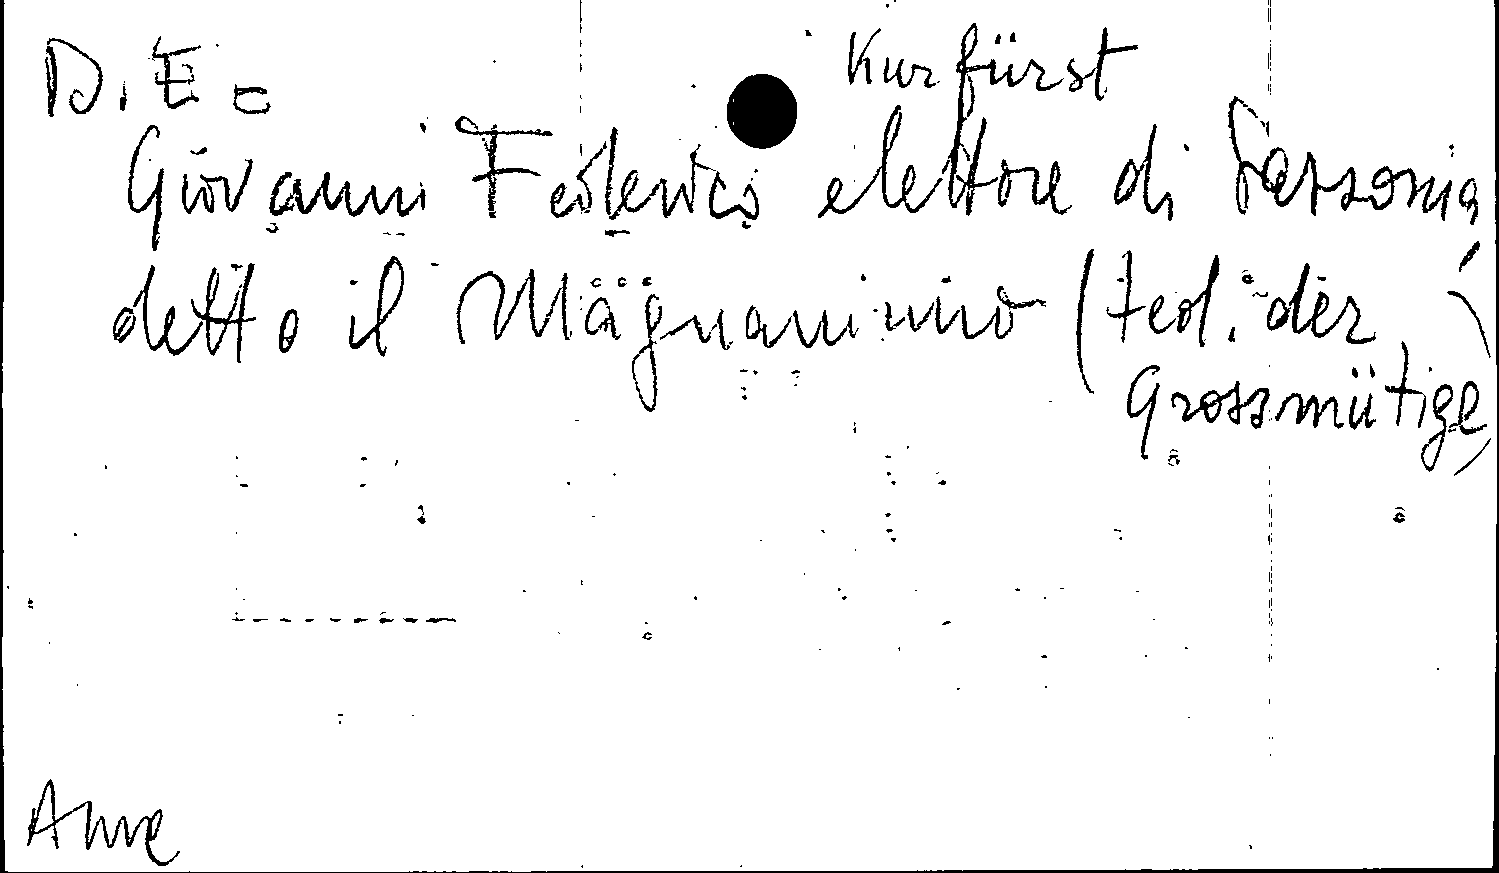 D. E =
Kurfürst
Giovanni Federico elettore di Sassonia
detto il Magnanimo (ted. der
Grossmütige)